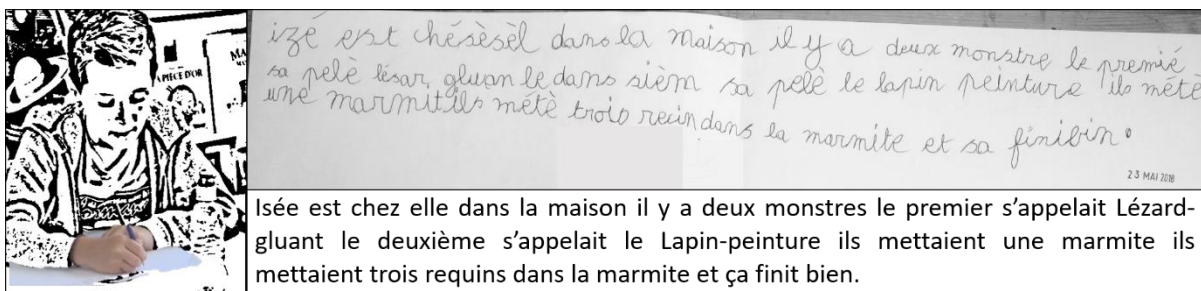 APIÈCE D'OR
MA
izé est chésèsèl dans la maison il y a deux monstre le premié
sa pelè lésar gluan le dams sièm sa pelè le lapin peinture ils métè
une marmitils métè trois recin dans la marmite et sa finibin.
23 MAI 2018
Isée est chez elle dans la maison il y a deux monstres le premier s’appelait Lézard-
gluant le deuxième s’appelait le Lapin-peinture ils mettaient une marmite ils
mettaient trois requins dans la marmite et ça finit bien.